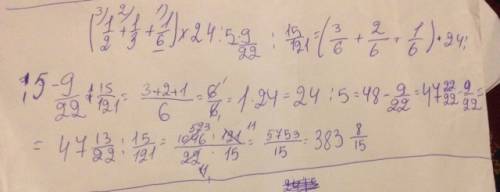 (³⁾1/2 + ²⁾1/3 + ¹⁾1/6) × 24 : 5 - 9/22 : 15/121 = (3/6 + 2/6 + 1/6) · 24 :
: 5 - 9/22 : 15/121 = (3+2+1)/6 = 6/6 = 1 · 24 = 24 : 5 = 48 - 9/22 = 47 22/22 - 9/22 =
= 47 13/22 : 15/121 = 523 · 11 / 15 = 5753/15 = 383 8/15